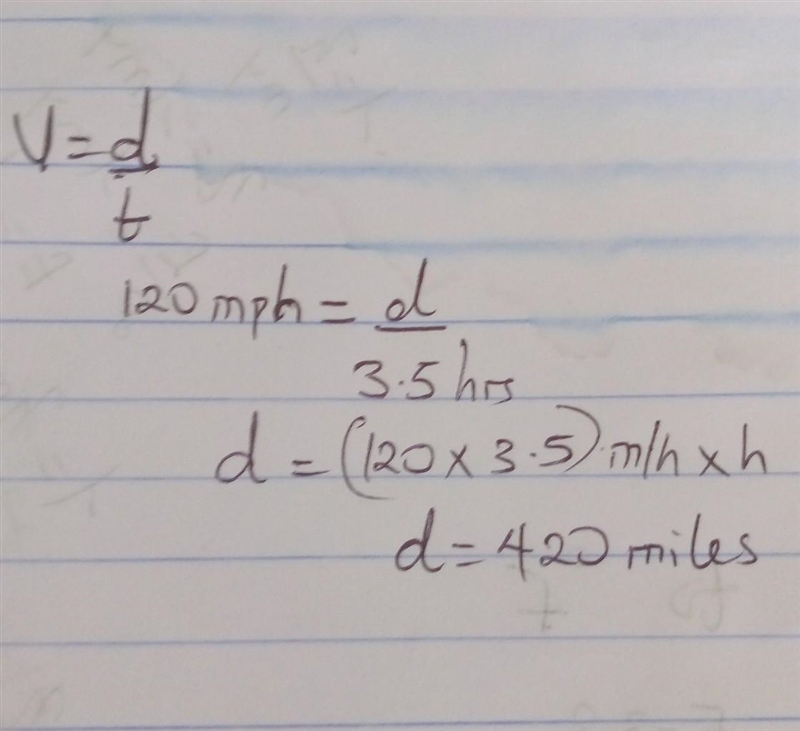 V = d
t
120 mph = d
3.5 hrs
d = (120 x 3.5) m/h x h
d = 420 miles